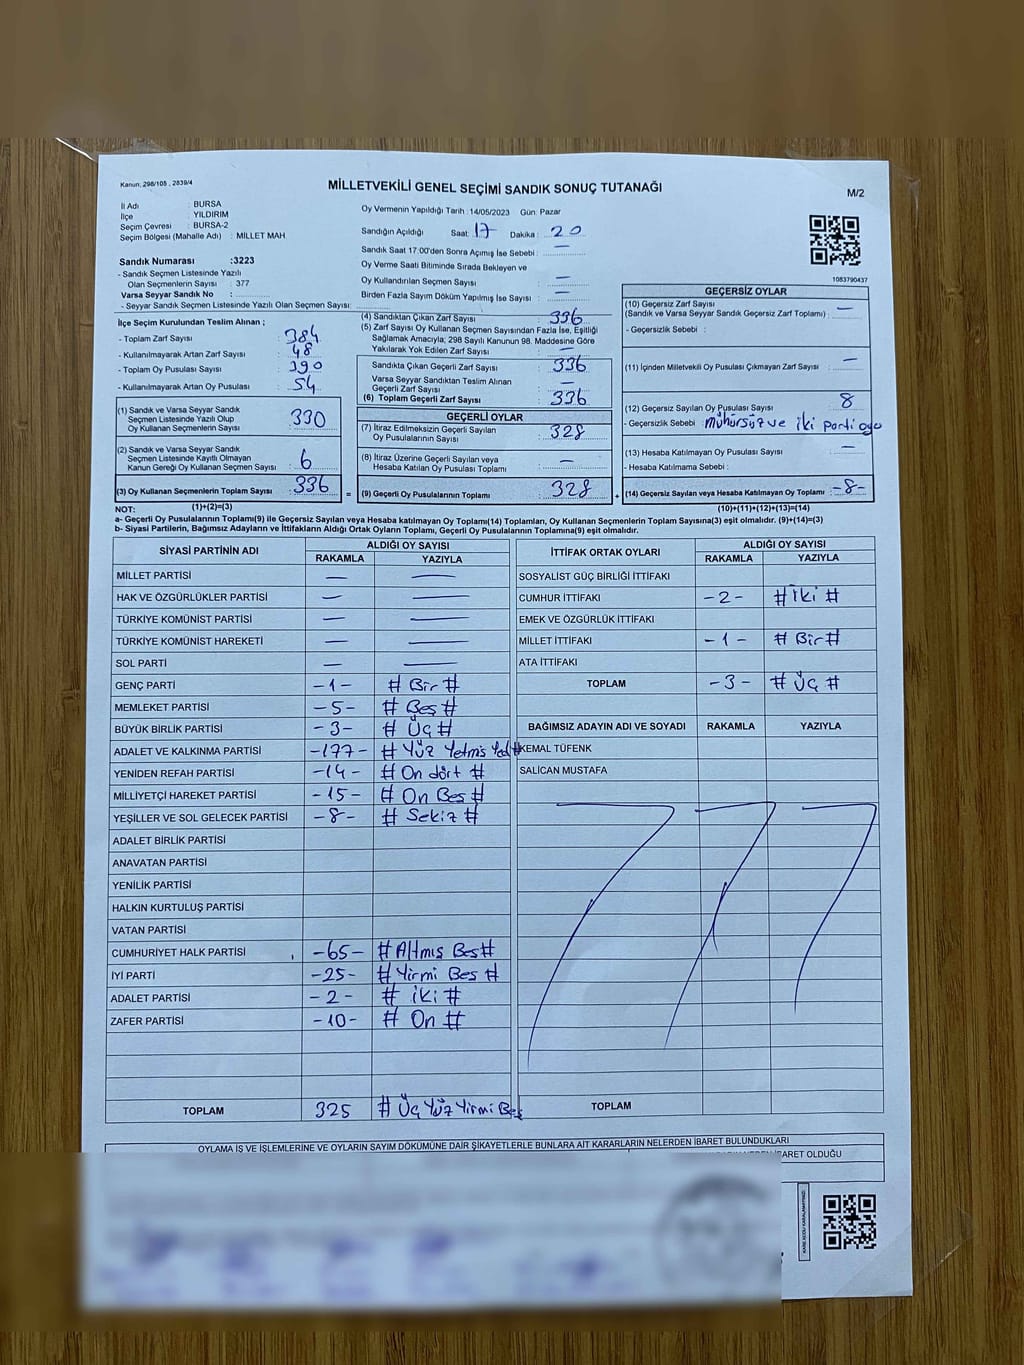 Kanun; 298/105 , 2839/4
MİLLETVEKİLİ GENEL SEÇİMİ SANDIK SONUÇ TUTANAĞI
M/2
İl Adı : BURSA
İlçe : YILDIRIM
Seçim Çevresi : BURSA-2
Seçim Bölgesi (Mahalle Adı) : MİLLET MAH
Oy Vermenin Yapıldığı Tarih :14/05/2023 Gün: Pazar
Sandığın Açıldığı Saat: 17 Dakika : 20
Sandık Saat 17:00'den Sonra Açımış İse Sebebi : —
Oy Verme Saati Bitiminde Sırada Bekleyen ve
Oy Kullandırılan Seçmen Sayısı : —
Birden Fazla Sayım Döküm Yapılmış İse Sayısı : —
1083790437
Sandık Numarası :3223
- Sandık Seçmen Listesinde Yazılı
Olan Seçmenlerin Sayısı : 377
Varsa Seyyar Sandık No :
- Seyyar Sandık Seçmen Listesinde Yazılı Olan Seçmen Sayısı:
İlçe Seçim Kurulundan Teslim Alınan ;
- Toplam Zarf Sayısı : 384
- Kullanılmayarak Artan Zarf Sayısı : 48
- Toplam Oy Pusulası Sayısı : 390
- Kullanılmayarak Artan Oy Pusulası : 54
(1) Sandık ve Varsa Seyyar Sandık
Seçmen Listesinde Yazılı Olup
Oy Kullanan Seçmenlerin Sayısı : 330
(2) Sandık ve Varsa Seyyar Sandık
Seçmen Listesinde Kayıtlı Olmayan
Kanun Gereği Oy Kullanan Seçmen Sayısı : 6
(3) Oy Kullanan Seçmenlerin Toplam Sayısı : 336
(1)+(2)=(3)
(4) Sandıktan Çıkan Zarf Sayısı : 336
(5) Zarf Sayısı Oy Kullanan Seçmen Sayısından Fazla İse, Eşitliği
Sağlamak Amacıyla; 298 Sayılı Kanunun 98. Maddesine Göre
Yakılarak Yok Edilen Zarf Sayısı : —
Sandıkta Çıkan Geçerli Zarf Sayısı : 336
Varsa Seyyar Sandıktan Teslim Alınan
Geçerli Zarf Sayısı : —
(6) Toplam Geçerli Zarf Sayısı : 336
GEÇERLİ OYLAR
(7) İtiraz Edilmeksizin Geçerli Sayılan
Oy Pusulalarının Sayısı : 328
(8) İtiraz Üzerine Geçerli Sayılan veya
Hesaba Katılan Oy Pusulası Toplamı : —
= (9) Geçerli Oy Pusulalarının Toplamı : 328 +
GEÇERSİZ OYLAR
(10) Geçersiz Zarf Sayısı
(Sandık ve Varsa Seyyar Sandık Geçersiz Zarf Toplamı) : —
- Geçersizlik Sebebi :
(11) İçinden Milletvekili Oy Pusulası Çıkmayan Zarf Sayısı : —
(12) Geçersiz Sayılan Oy Pusulası Sayısı : 8
- Geçersizlik Sebebi : mühürsüz ve iki parti oyu
(13) Hesaba Katılmayan Oy Pusulası Sayısı : —
- Hesaba Katılmama Sebebi :
(14) Geçersiz Sayılan veya Hesaba Katılmayan Oy Toplamı : -8-
(10)+(11)+(12)+(13)=(14)
NOT:
a- Geçerli Oy Pusulalarının Toplamı(9) ile Geçersiz Sayılan veya Hesaba katılmayan Oy Toplamı(14) Toplamları, Oy Kullanan Seçmenlerin Toplam Sayısına(3) eşit olmalıdır. (9)+(14)=(3)
b- Siyasi Partilerin, Bağımsız Adayların ve İttifakların Aldığı Ortak Oyların Toplamı, Geçerli Oy Pusulalarının Toplamına(9) eşit olmalıdır.
SİYASİ PARTİNİN ADI ALDIĞI OY SAYISI
RAKAMLA YAZIYLA
MİLLET PARTİSİ — —
HAK VE ÖZGÜRLÜKLER PARTİSİ — —
TÜRKİYE KOMÜNİST PARTİSİ — —
TÜRKİYE KOMÜNİST HAREKETİ — —
SOL PARTİ — —
GENÇ PARTİ -1- # Bir #
MEMLEKET PARTİSİ -5- # Beş #
BÜYÜK BİRLİK PARTİSİ -3- # Üç #
ADALET VE KALKINMA PARTİSİ -177- # Yüz Yetmiş Yedi #
YENİDEN REFAH PARTİSİ -14- # On dört #
MİLLİYETÇİ HAREKET PARTİSİ -15- # On Beş #
YEŞİLLER VE SOL GELECEK PARTİSİ -8- # Sekiz #
ADALET BİRLİK PARTİSİ
ANAVATAN PARTİSİ
YENİLİK PARTİSİ
HALKIN KURTULUŞ PARTİSİ
VATAN PARTİSİ
CUMHURİYET HALK PARTİSİ -65- # Altmış Beş #
İYİ PARTİ -25- # Yirmi Beş #
ADALET PARTİSİ -2- # iki #
ZAFER PARTİSİ -10- # On #
TOPLAM 325 # Üç Yüz Yirmi Beş
İTTİFAK ORTAK OYLARI ALDIĞI OY SAYISI
RAKAMLA YAZIYLA
SOSYALİST GÜÇ BİRLİĞİ İTTİFAKI
CUMHUR İTTİFAKI -2- # İki #
EMEK VE ÖZGÜRLÜK İTTİFAKI
MİLLET İTTİFAKI -1- # Bir #
ATA İTTİFAKI
TOPLAM -3- # Üç #
BAĞIMSIZ ADAYIN ADI VE SOYADI RAKAMLA YAZIYLA
KEMAL TÜFENK
SALİCAN MUSTAFA
TOPLAM
OYLAMA İŞ VE İŞLEMLERİNE VE OYLARIN SAYIM DÖKÜMÜNE DAİR ŞİKAYETLERLE BUNLARA AİT KARARLARIN NELERDEN İBARET BULUNDUKLARI
İBARET OLDUĞU